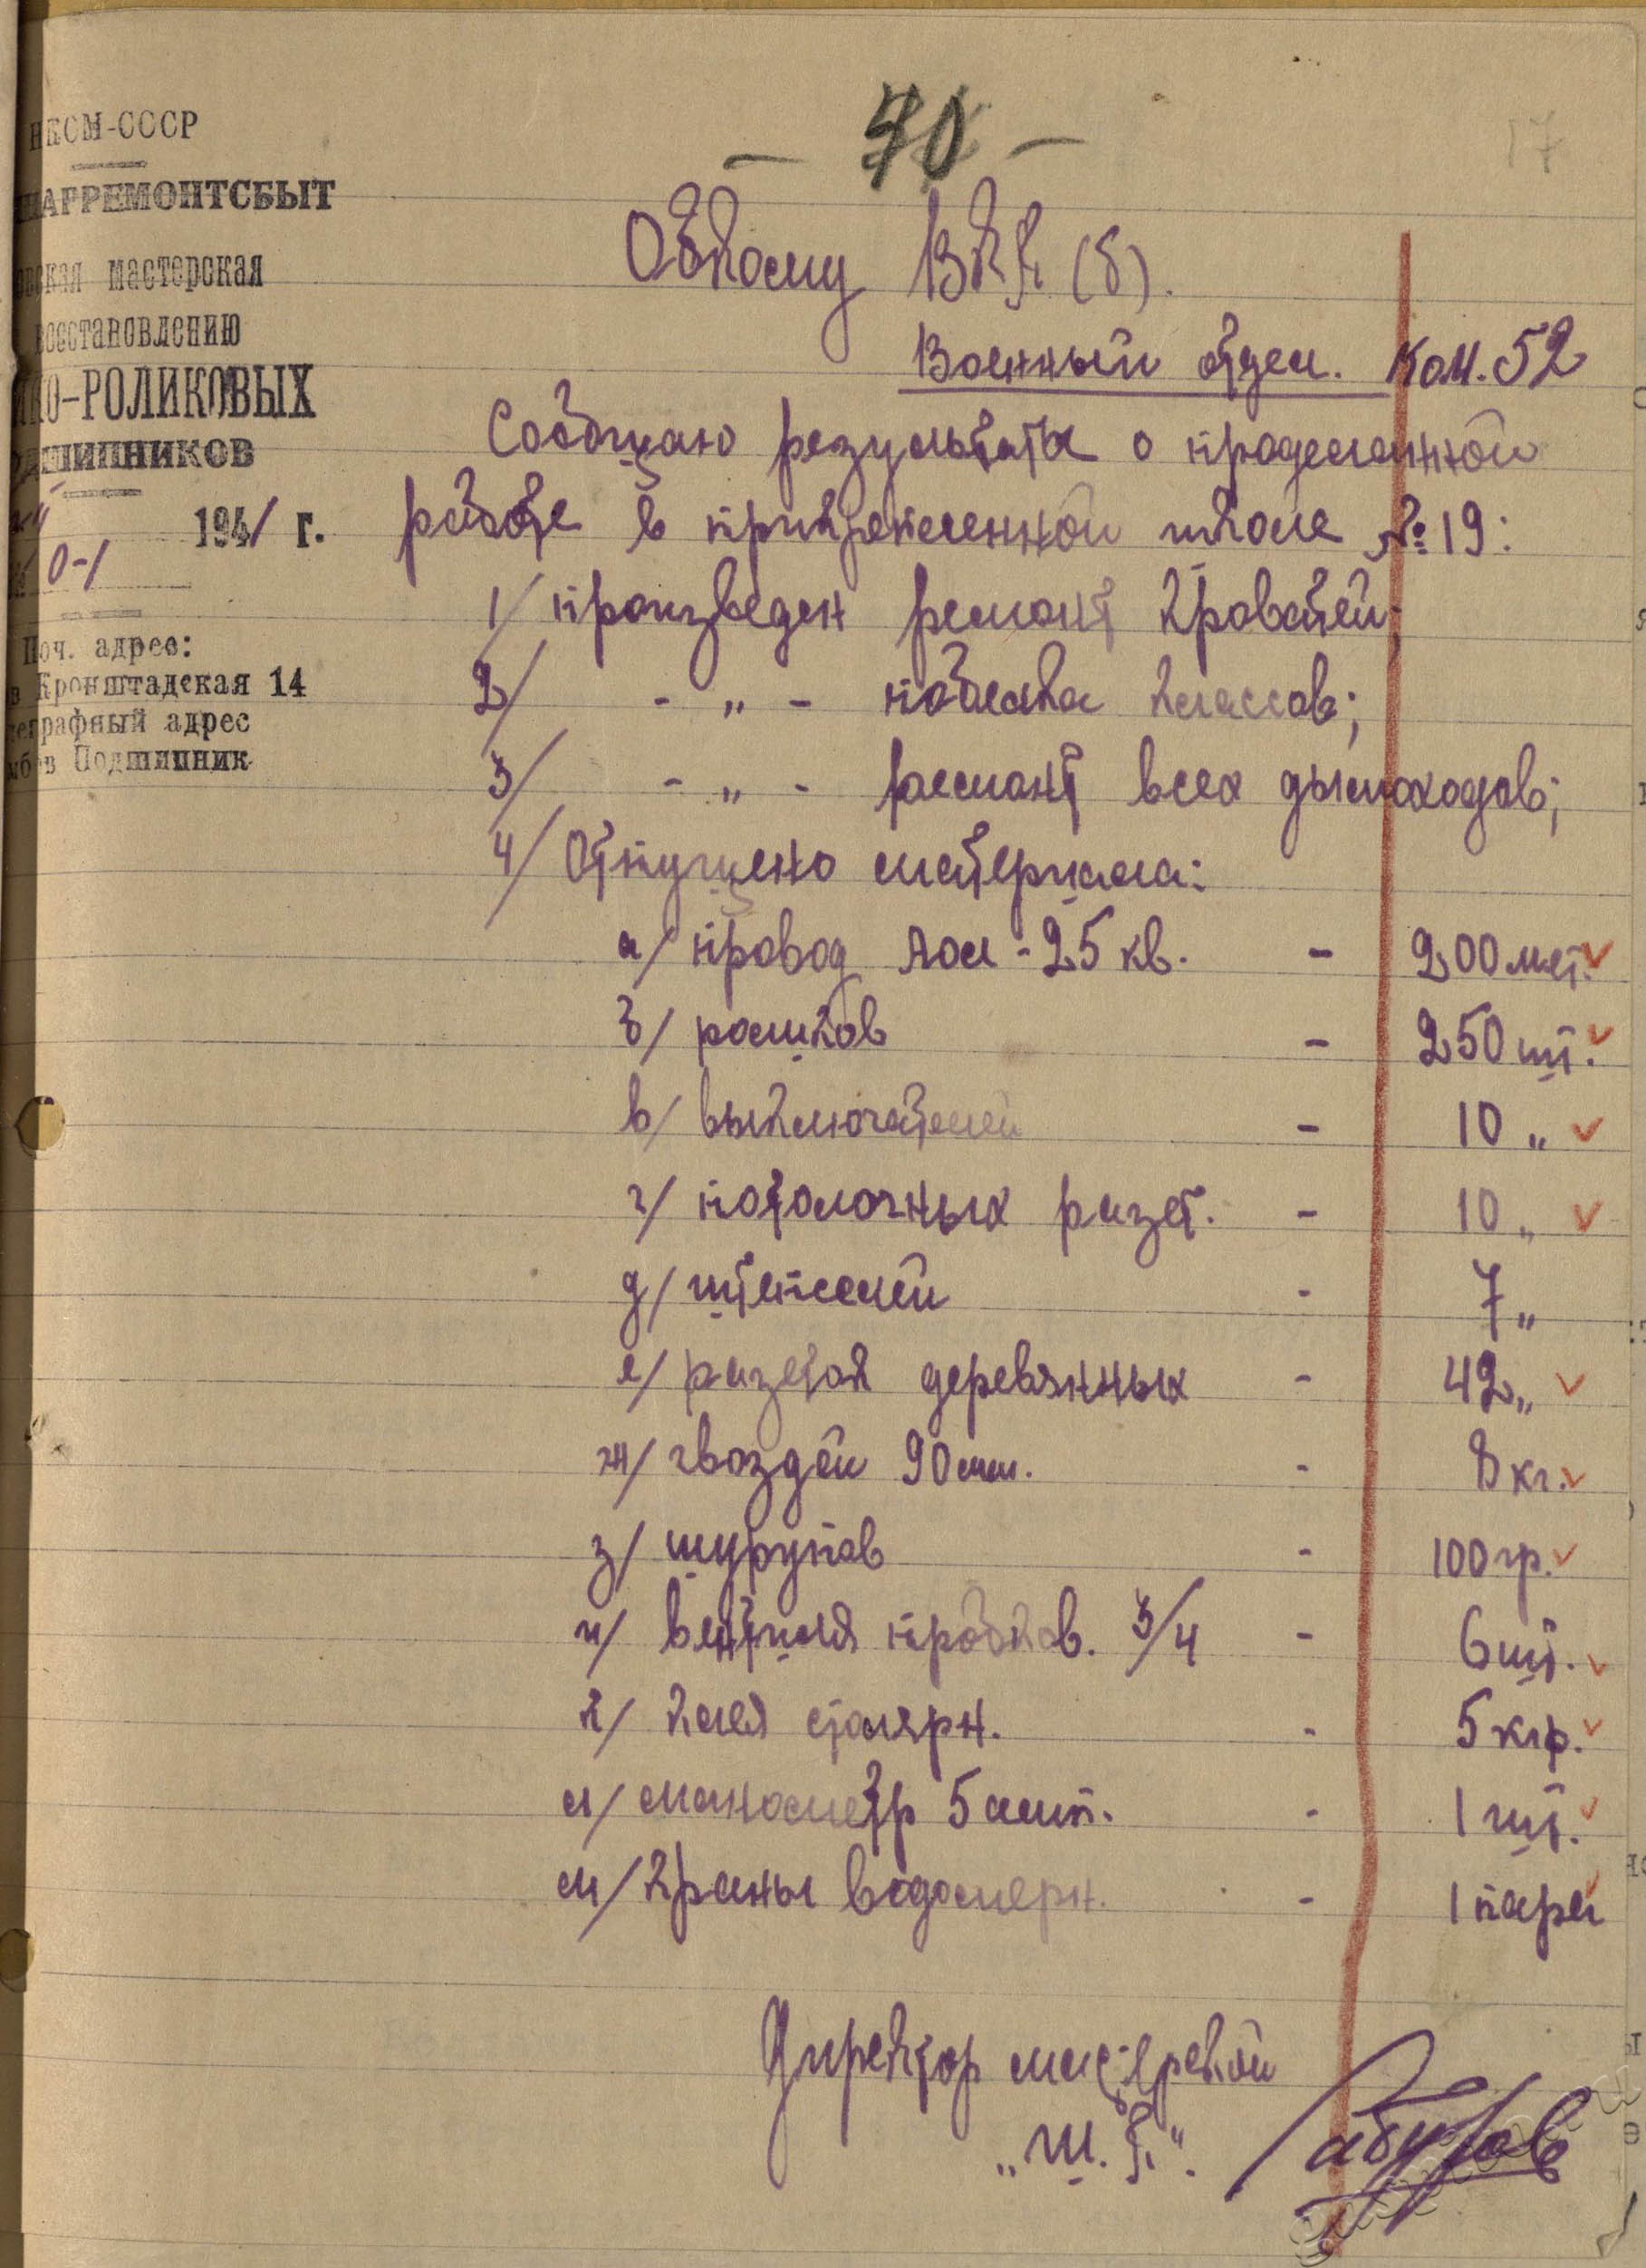 - 40 -
17
НКСМ-СССР
АРРЕМОНТСБЫТ
вская мастерская
восстановлению
О-РОЛИКОВЫХ
ШИПНИКОВ
1941 г.
0-1
Поч. адрес:
в Кронштадская 14
еграфный адрес
мбов Подшипник
Обкому ВКП(б).
Военный отдел. Ком. 52
Сообщаю результаты о проделанной
работе в прикрепленной школе № 19:
1/ произведен ремонт кроватей;
2/ - „ - побелка классов;
3/ - „ - ремонт всех дымоходов;
4/ Отпущено материала:
а/ провод - 25 кв. - 200 мет.
б/ роликов - 250 шт.
в/ выключателей - 10 „
г/ потолочных разет. - 10 „
д/ штепселей - 7 „
е/ разеток деревянных - 42 „
ж/ гвоздей 90 мм. - 8 кг.
з/ шурупов - 100 гр.
и/ вентиля пробков. 3/4 - 6 шт.
к/ клея столярн. - 5 кгр.
л/ манометр 5 - 1 шт.
м/ краны водомерн. - 1 пара
Директор мастерской
„Ш.П.“.